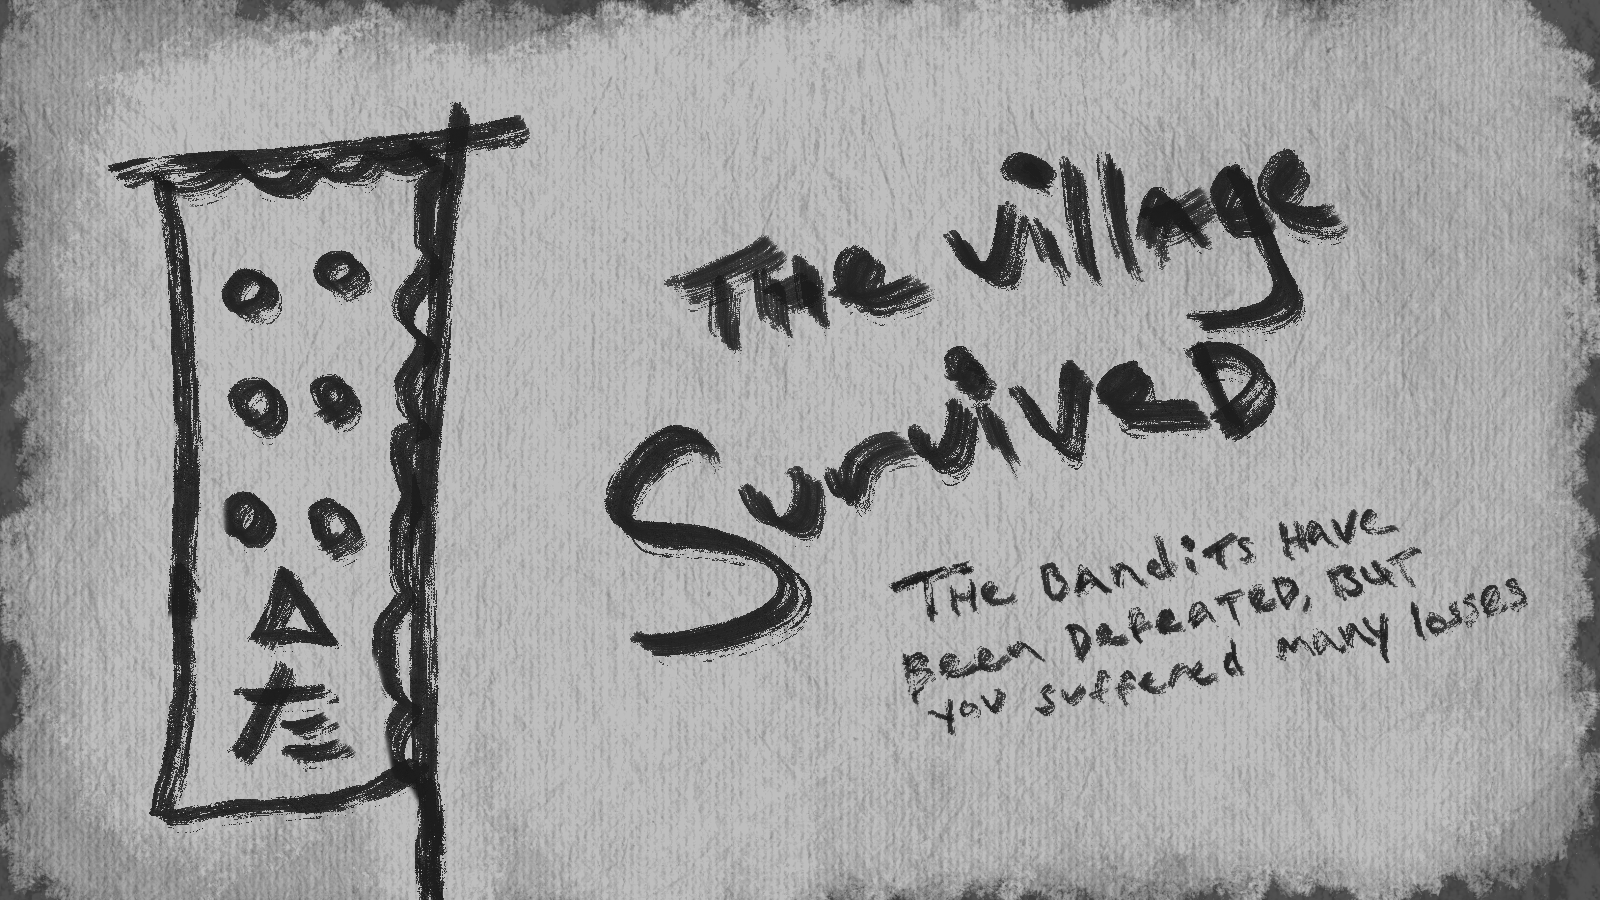 た
The village
Survived
The Bandits have
Been Defeated, But
you suffered many losses